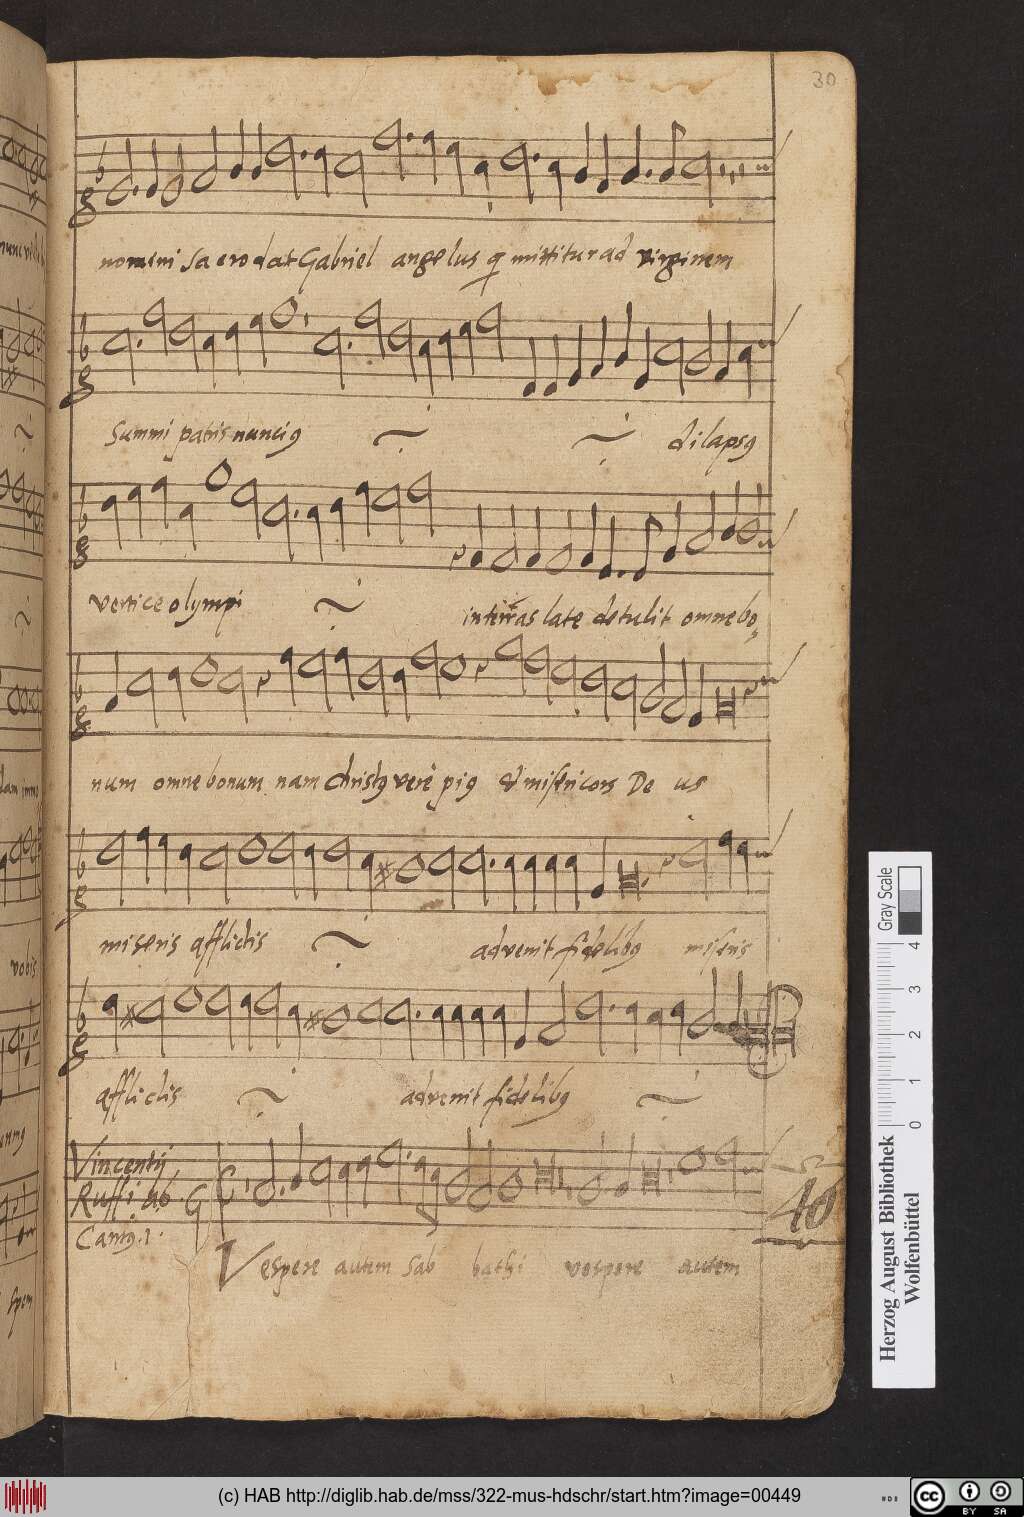 30
nomeni Sacro dat Gabriel angelus q mittitur ad virginem
Summi patris nuncig dilapsg
vertice olympi in terras late detulit omne bo
num omne bonum nam Christg vere pig & misericors De us
miseris afflictis advenit fidelibg miseris
afflictis advenit fidelibg
Vincentij
Ruffi. a6.
Cantg. 1.
Vespere autem Sab bathi vespere autem
40
Gray Scale
0 1 2 3 4
Herzog August Bibliothek
Wolfenbüttel
(c) HAB http://diglib.hab.de/mss/322-mus-hdschr/start.htm?image=00449
cc BY SA